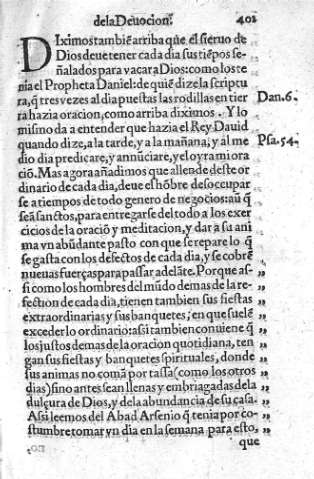 dela Deuocion. 402
DIximos tambiẽ arriba que el sieruo de
Dios deue tener cada dia sus tiẽpos se
ñalados para vacar a Dios: como los te
nia el Propheta Daniel: de quiẽ dize la scriptu
ra, q̃ tres vezes al dia puestas las rodillas en tier
ra hazia oracion, como arriba diximos. Y lo Dan.6.
mismo da a entender que hazia el Rey Dauid
quando dize, a la tarde, y a la mañana, y al me Psa.54.
dio dia predicare, y annũciare, y el oyra mi ora
ciõ. Mas agora añadimos que allende deste or
dinario de cada dia, deue el hõbre desoccupar
se a tiempos de todo genero de negocios: aũ q̃
seã sanctos, para entregarse del todo a los exer
cicios de la oraciõ y meditacion, y dar a su ani
ma vn abũdante pasto con que se repare lo q̃
se gasta con los defectos de cada dia, y se cobrẽ
nueuas fuerças para passar adelãte. Porque as- ,,
si como los hombres del mũdo demas de la re- ,,
fection de cada dia, tienen tambien sus fiestas ,,
extraordinarias y sus banquetes, en que suelẽ ,,
exceder lo ordinario: assi tambien conuiene q̃ ,,
los justos demas de la oracion quotidiana, ten- ,,
gan sus fiestas y banquetes spirituales, donde ,,
sus animas no comã por tassa (como los otros ,,
dias) sino antes sean llenas y embriagadas de la ,,
dulçura de Dios, y de la abundancia de su casa. ,,
Assi leemos del Abad Arsenio q̃ tenia por co- ,,
stumbre tomar vn dia en la semana para esto, ,,
que